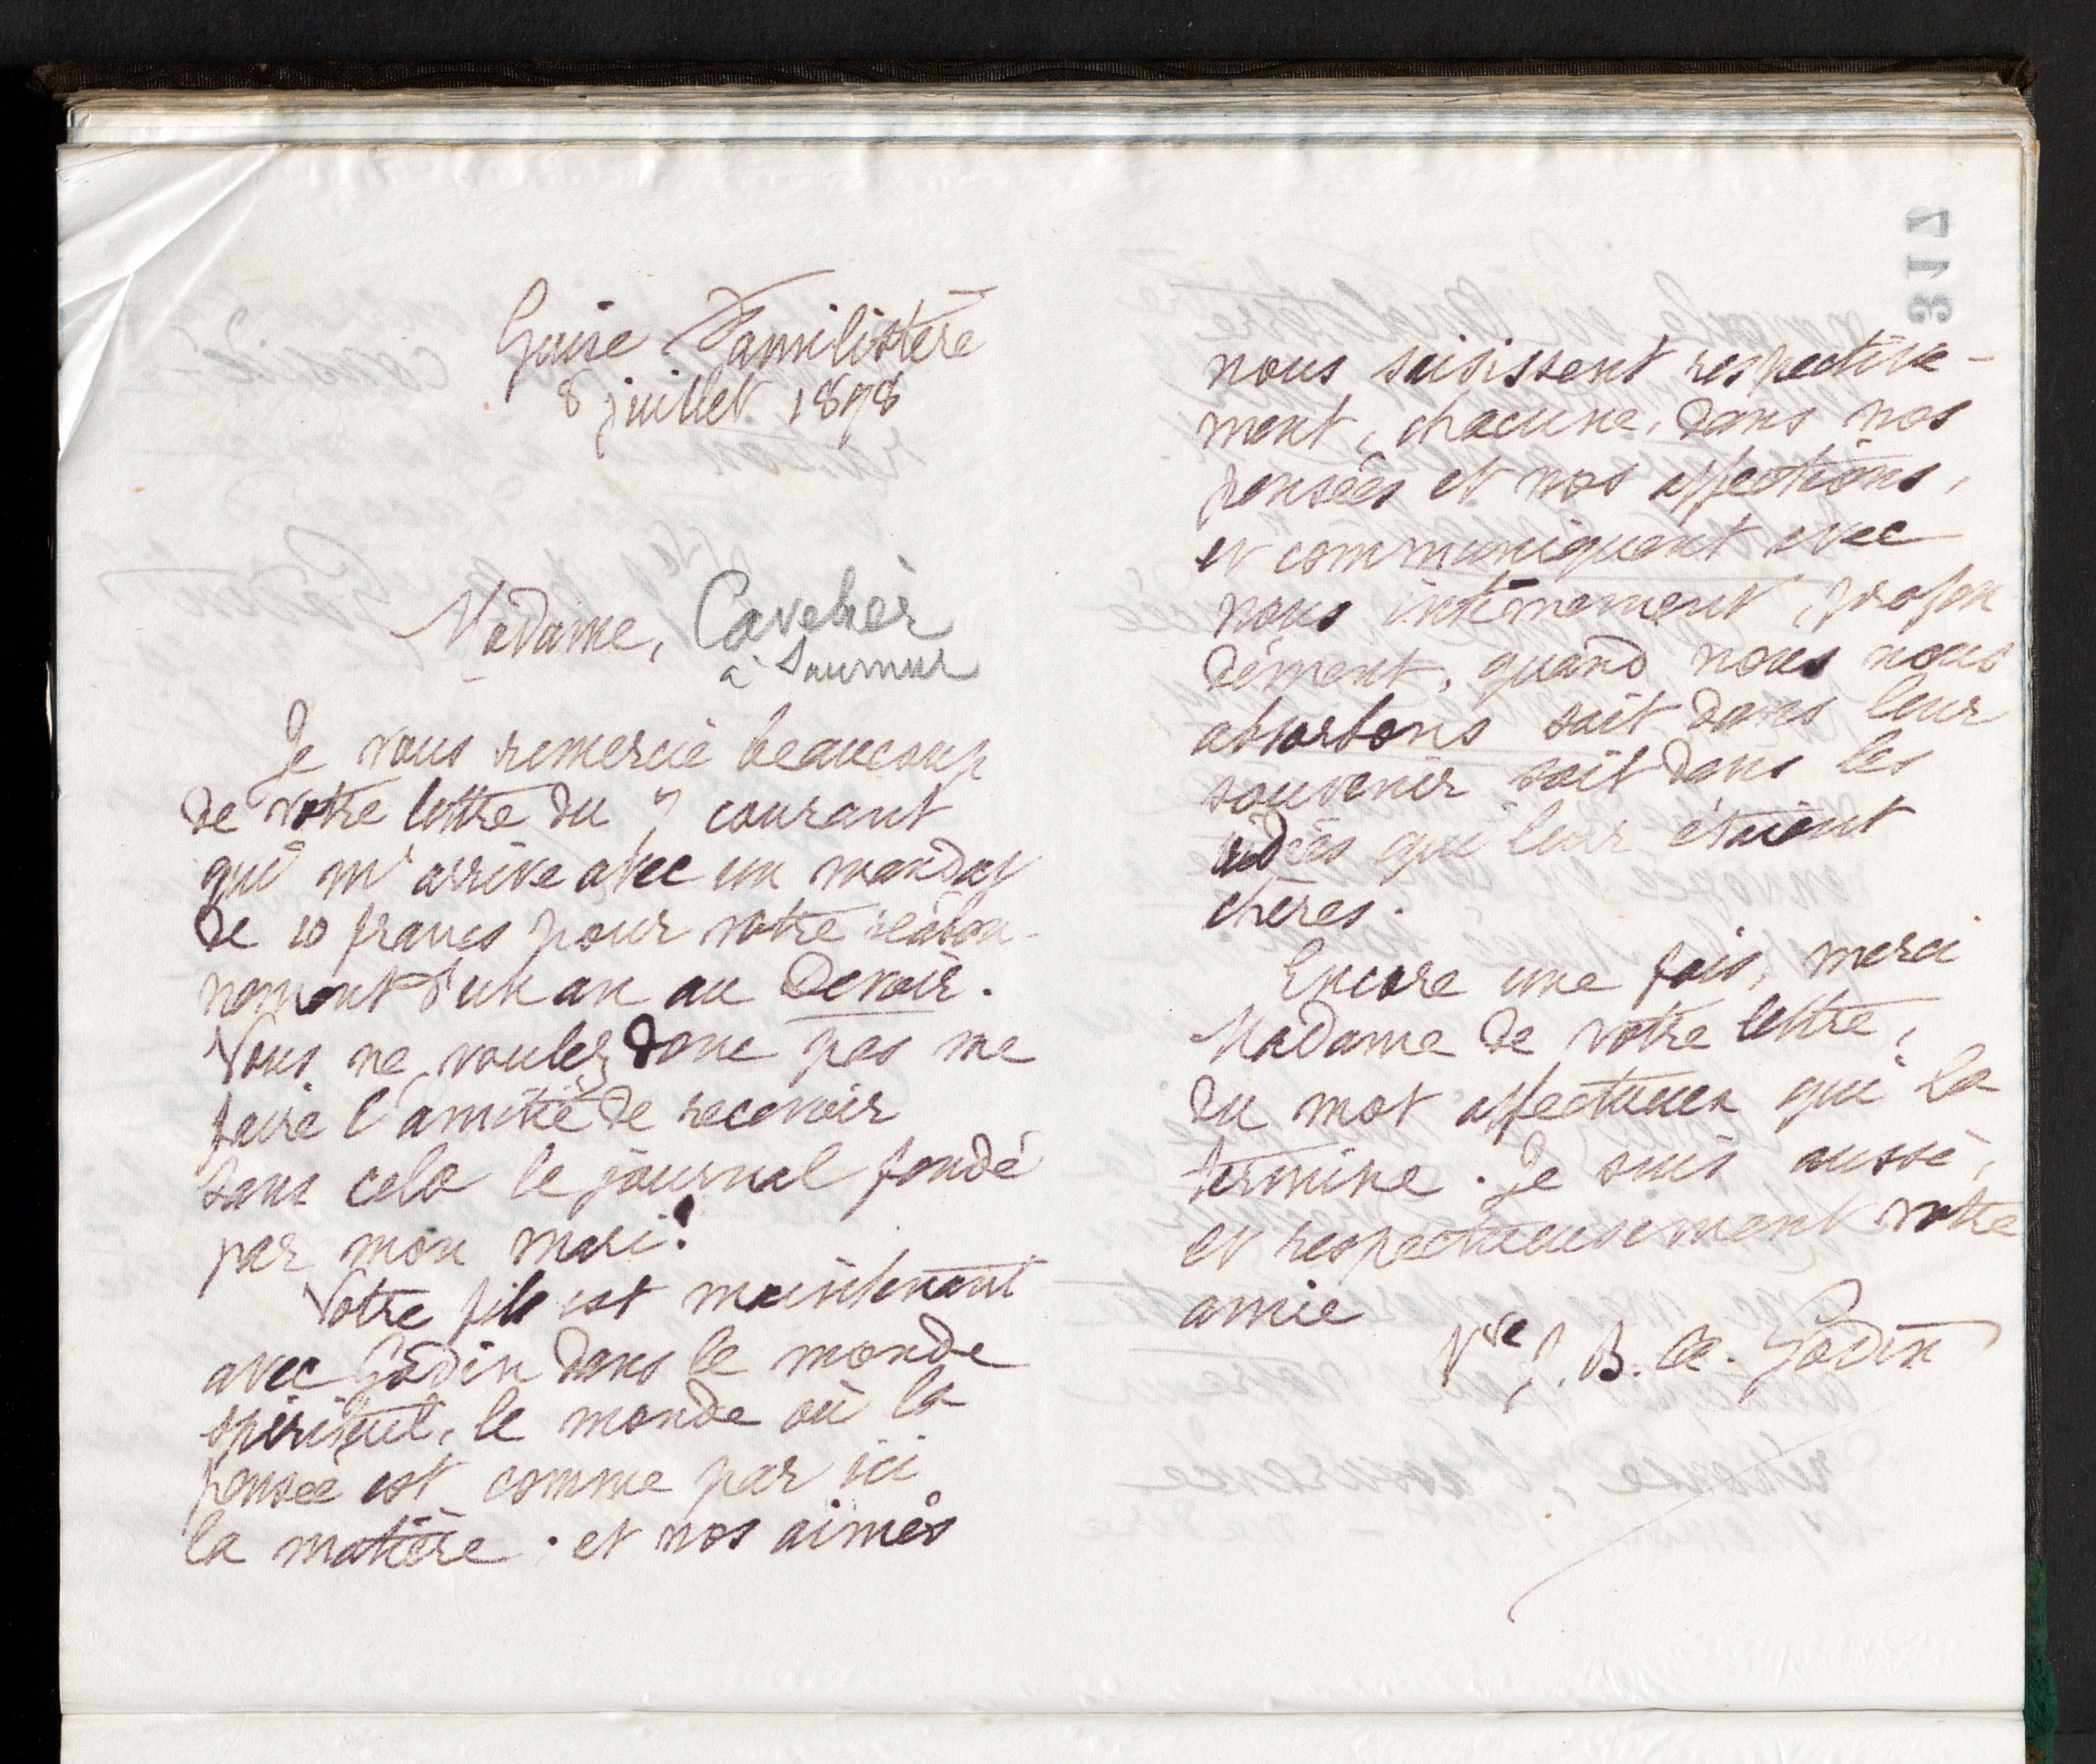 Guise Familistère
8 juillet 1898
Madame, Cavelier
à Saumur
Je vous remercie beaucoup
de votre lettre du 7 courant
qui m'arrive avec un mandat
de 10 francs pour votre réabon-
nement d'un an au Devoir.
Vous ne voulez donc pas me
faire l'amitié de recevoir
sans cela le journal fondé
par mon mari!
Votre fils est maintenant
avec Godin dans le monde
spirituel, le monde où la
pensée est comme par ici
la matière. et nos aimés
317
nous saisissent respective-
ment, chacune, dans nos
pensées et nos affections,
et communiquent avec
nous intimement, profon
dément, quand nous nous
absorbons soit dans leur
souvenir soit dans les
idées qui leur étaient
chères.
Encore une fois, merci
Madame de votre lettre,
du mot affectueux qui la
termine. Je suis aussi,
et respectueusement votre
amie
Vve J. B. A. Godin